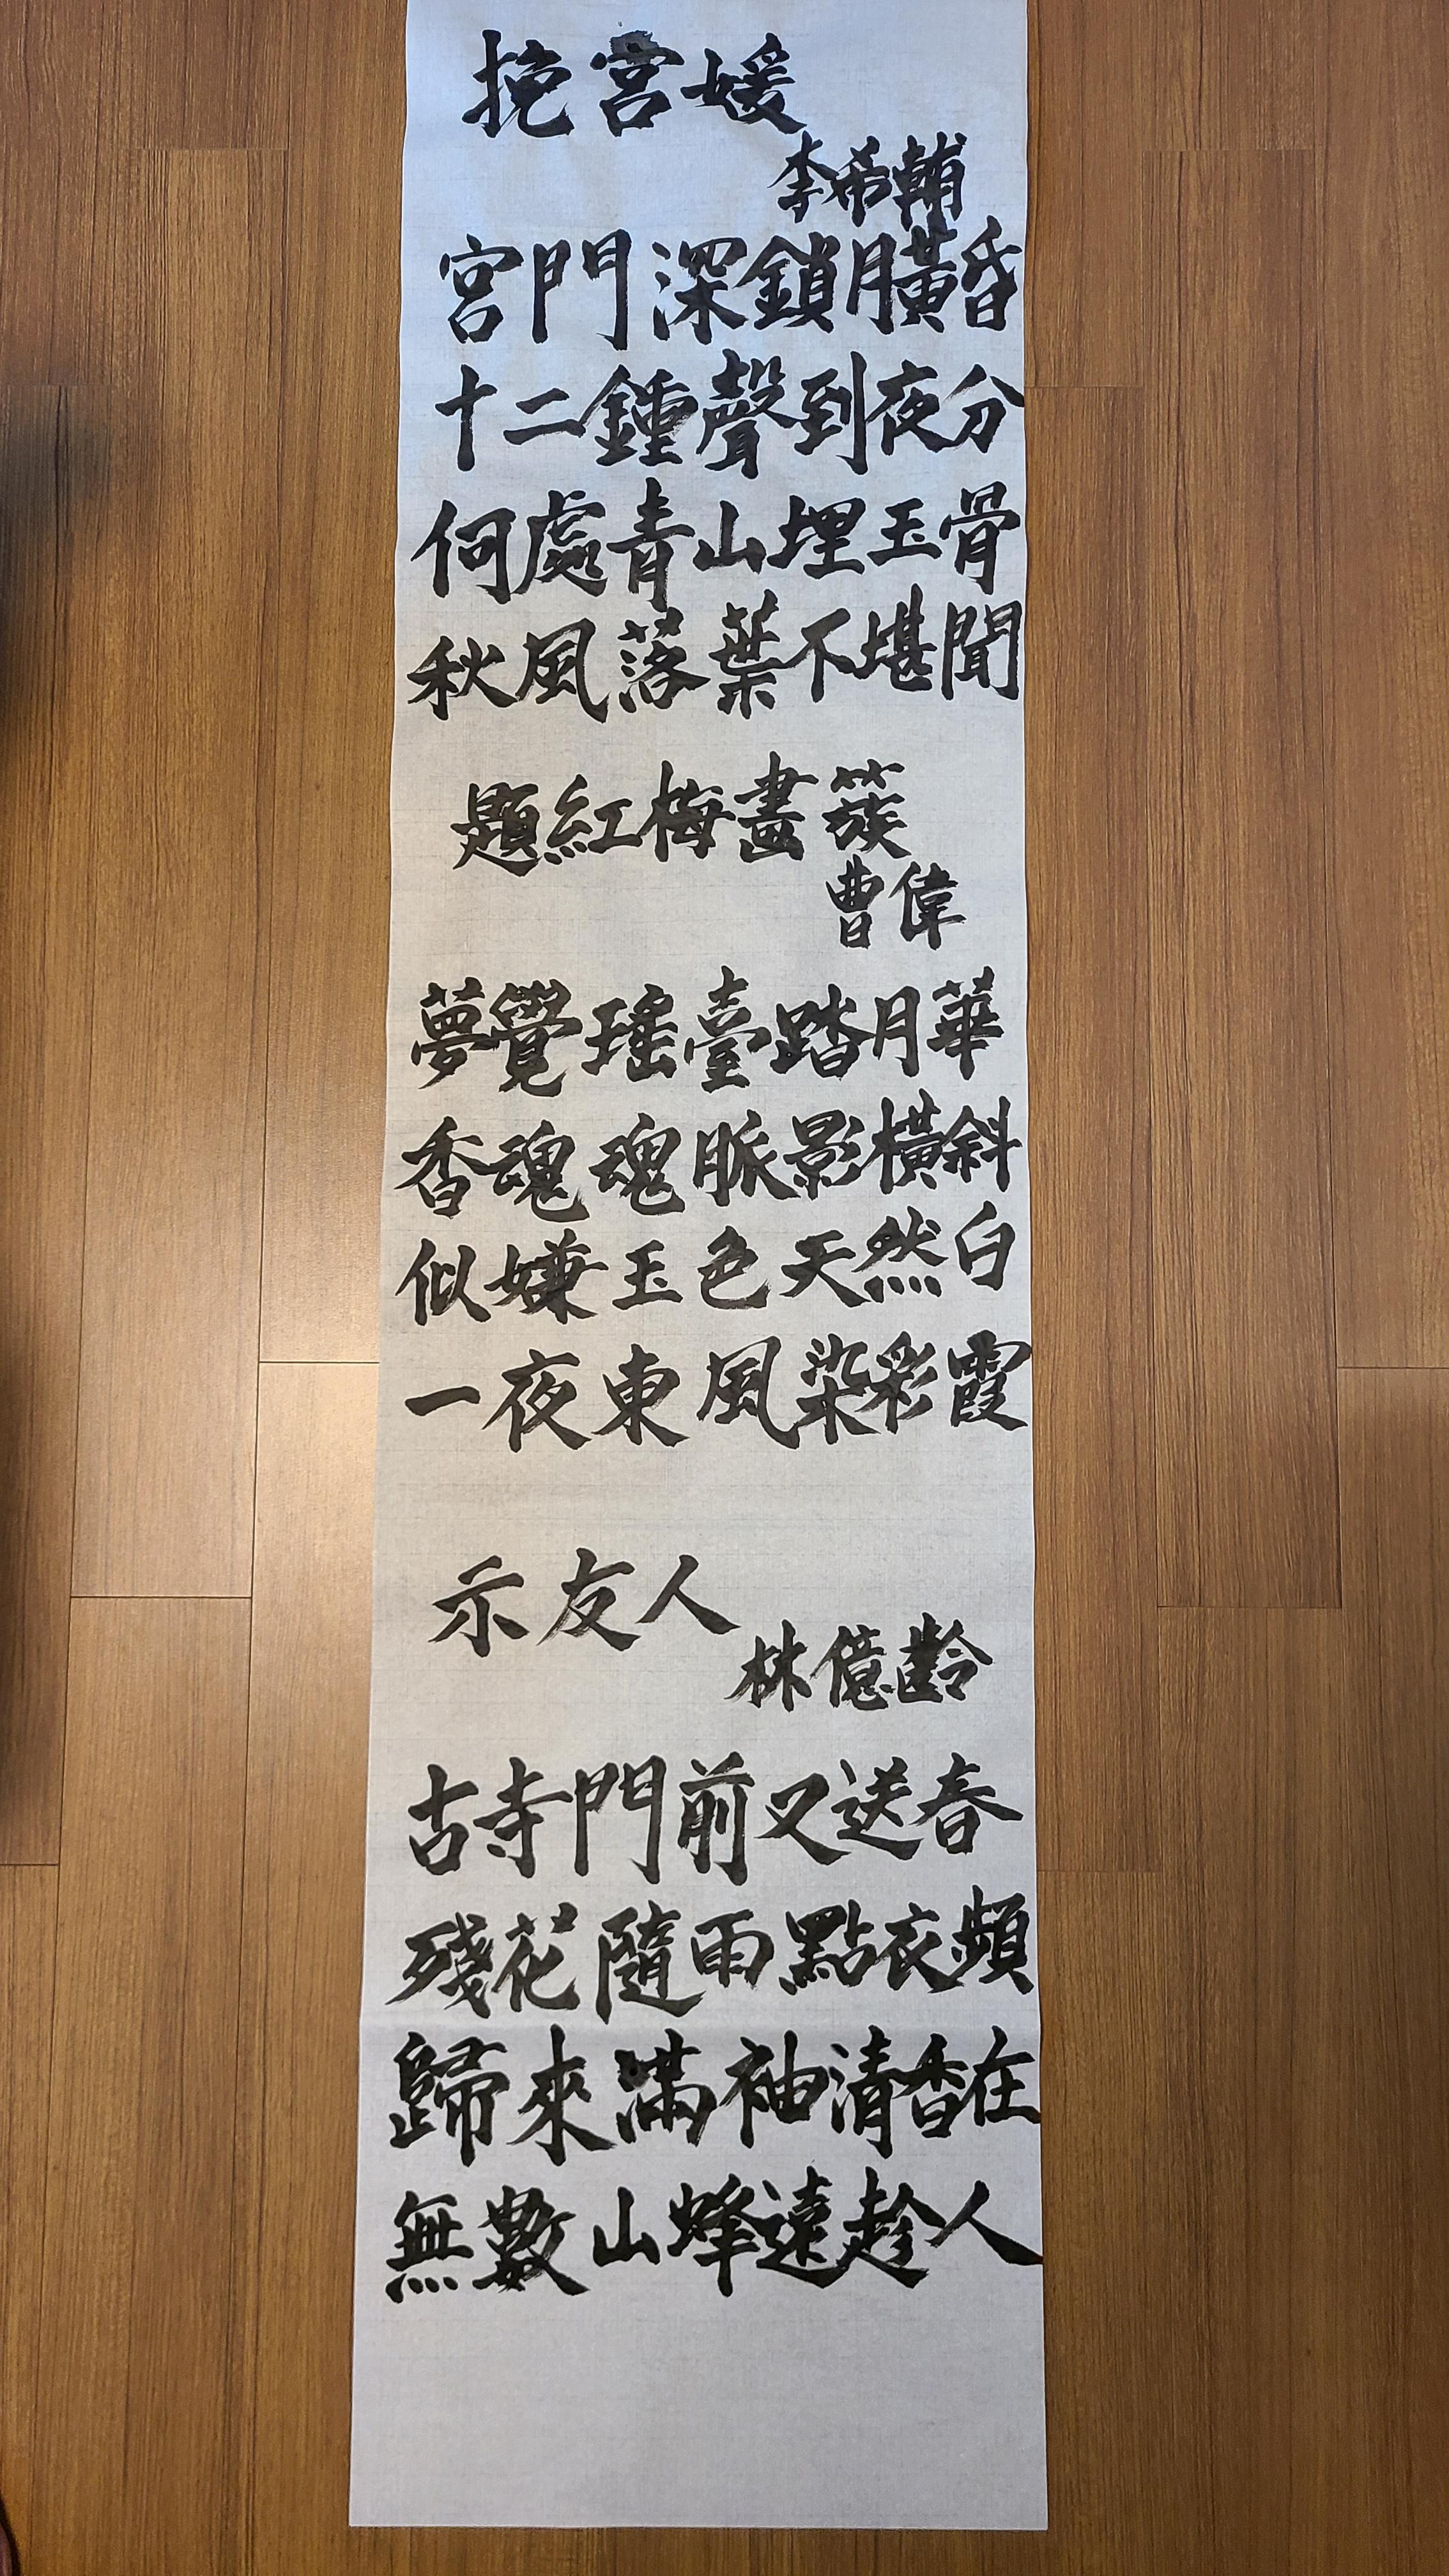 挽宮媛
李希輔
宮門深鎖月黃昏
十二鍾聲到夜分
何處青山埋玉骨
秋風落葉不堪聞
題紅梅畫蔟
曹偉
夢覺瑤臺踏月華
香魂魂脈影橫斜
似嫌玉色天然白
一夜東風染彩霞
示友人
林億齡
古寺門前又送春
殘花隨雨點衣頻
歸來滿袖清香在
無數山蜂遠趁人